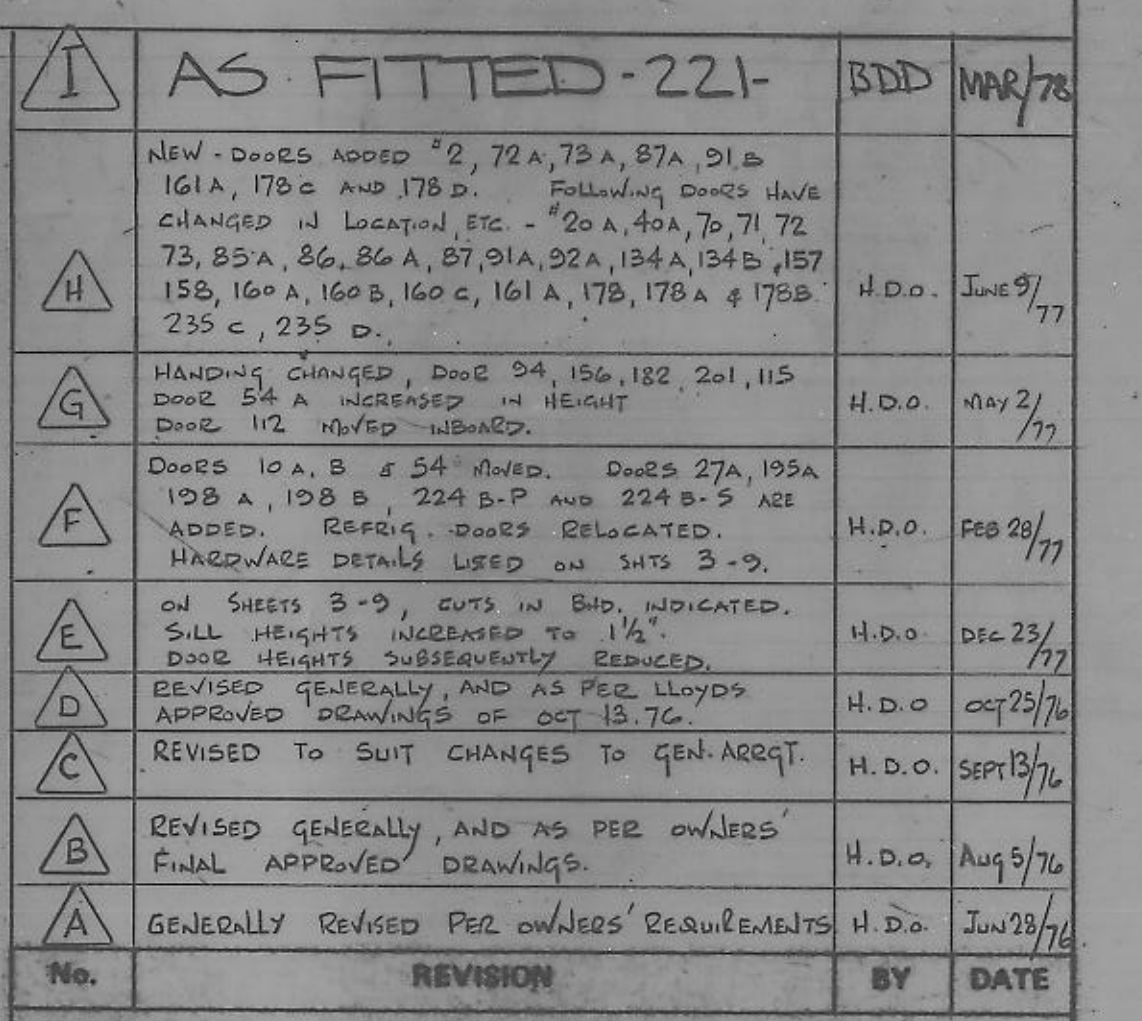 I AS FITTED - 221 - BDD MAR/78
NEW - DOORS ADDED #2, 72 A, 73 A, 87A, 91 B
161 A, 178 C AND 178 D. FOLLOWING DOORS HAVE
CHANGED IN LOCATION, ETC. - #20 A, 40A, 70, 71, 72
73, 85 A, 86, 86 A, 87, 91A, 92A, 134 A, 134B, 157
H 158, 160 A, 160 B, 160 C, 161 A, 178, 178 A & 178B. H.D.O. JUNE 9/77
235 C, 235 D.
HANDING CHANGED, DOOR 94, 156, 182, 201, 115
G DOOR 54 A INCREASED IN HEIGHT H.D.O. MAY 2/77
DOOR 112 MOVED INBOARD.
DOORS 10 A, B & 54 MOVED. DOORS 27A, 195A
198 A, 198 B, 224 B-P AND 224 B-S ARE
F ADDED. REFRIG. DOORS RELOCATED. H.D.O. FEB 28/77
HARDWARE DETAILS LISTED ON SHTS 3-9.
ON SHEETS 3-9, CUTS IN BHD. INDICATED.
E SILL HEIGHTS INCREASED TO 1½". H.D.O DEC 23/77
DOOR HEIGHTS SUBSEQUENTLY REDUCED.
REVISED GENERALLY, AND AS PER LLOYDS
D APPROVED DRAWINGS OF OCT 13.76. H.D.O OCT 25/76
C REVISED TO SUIT CHANGES TO GEN. ARRGT. H.D.O. SEPT 13/76
REVISED GENERALLY, AND AS PER OWNERS'
B FINAL APPROVED DRAWINGS. H.D.O, AUG 5/76
A GENERALLY REVISED PER OWNERS' REQUIREMENTS H.D.O. JUN 28/76
No. REVISION BY DATE